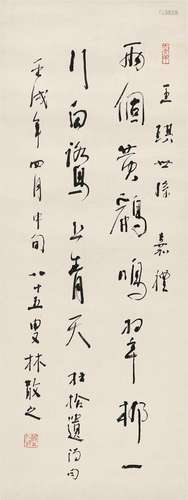 王琪世孫嘉禮
兩個黃鸝鳴翠柳一
行白鷺上青天杜拾遺詩句
壬戌年四月中旬八十五叟林散之